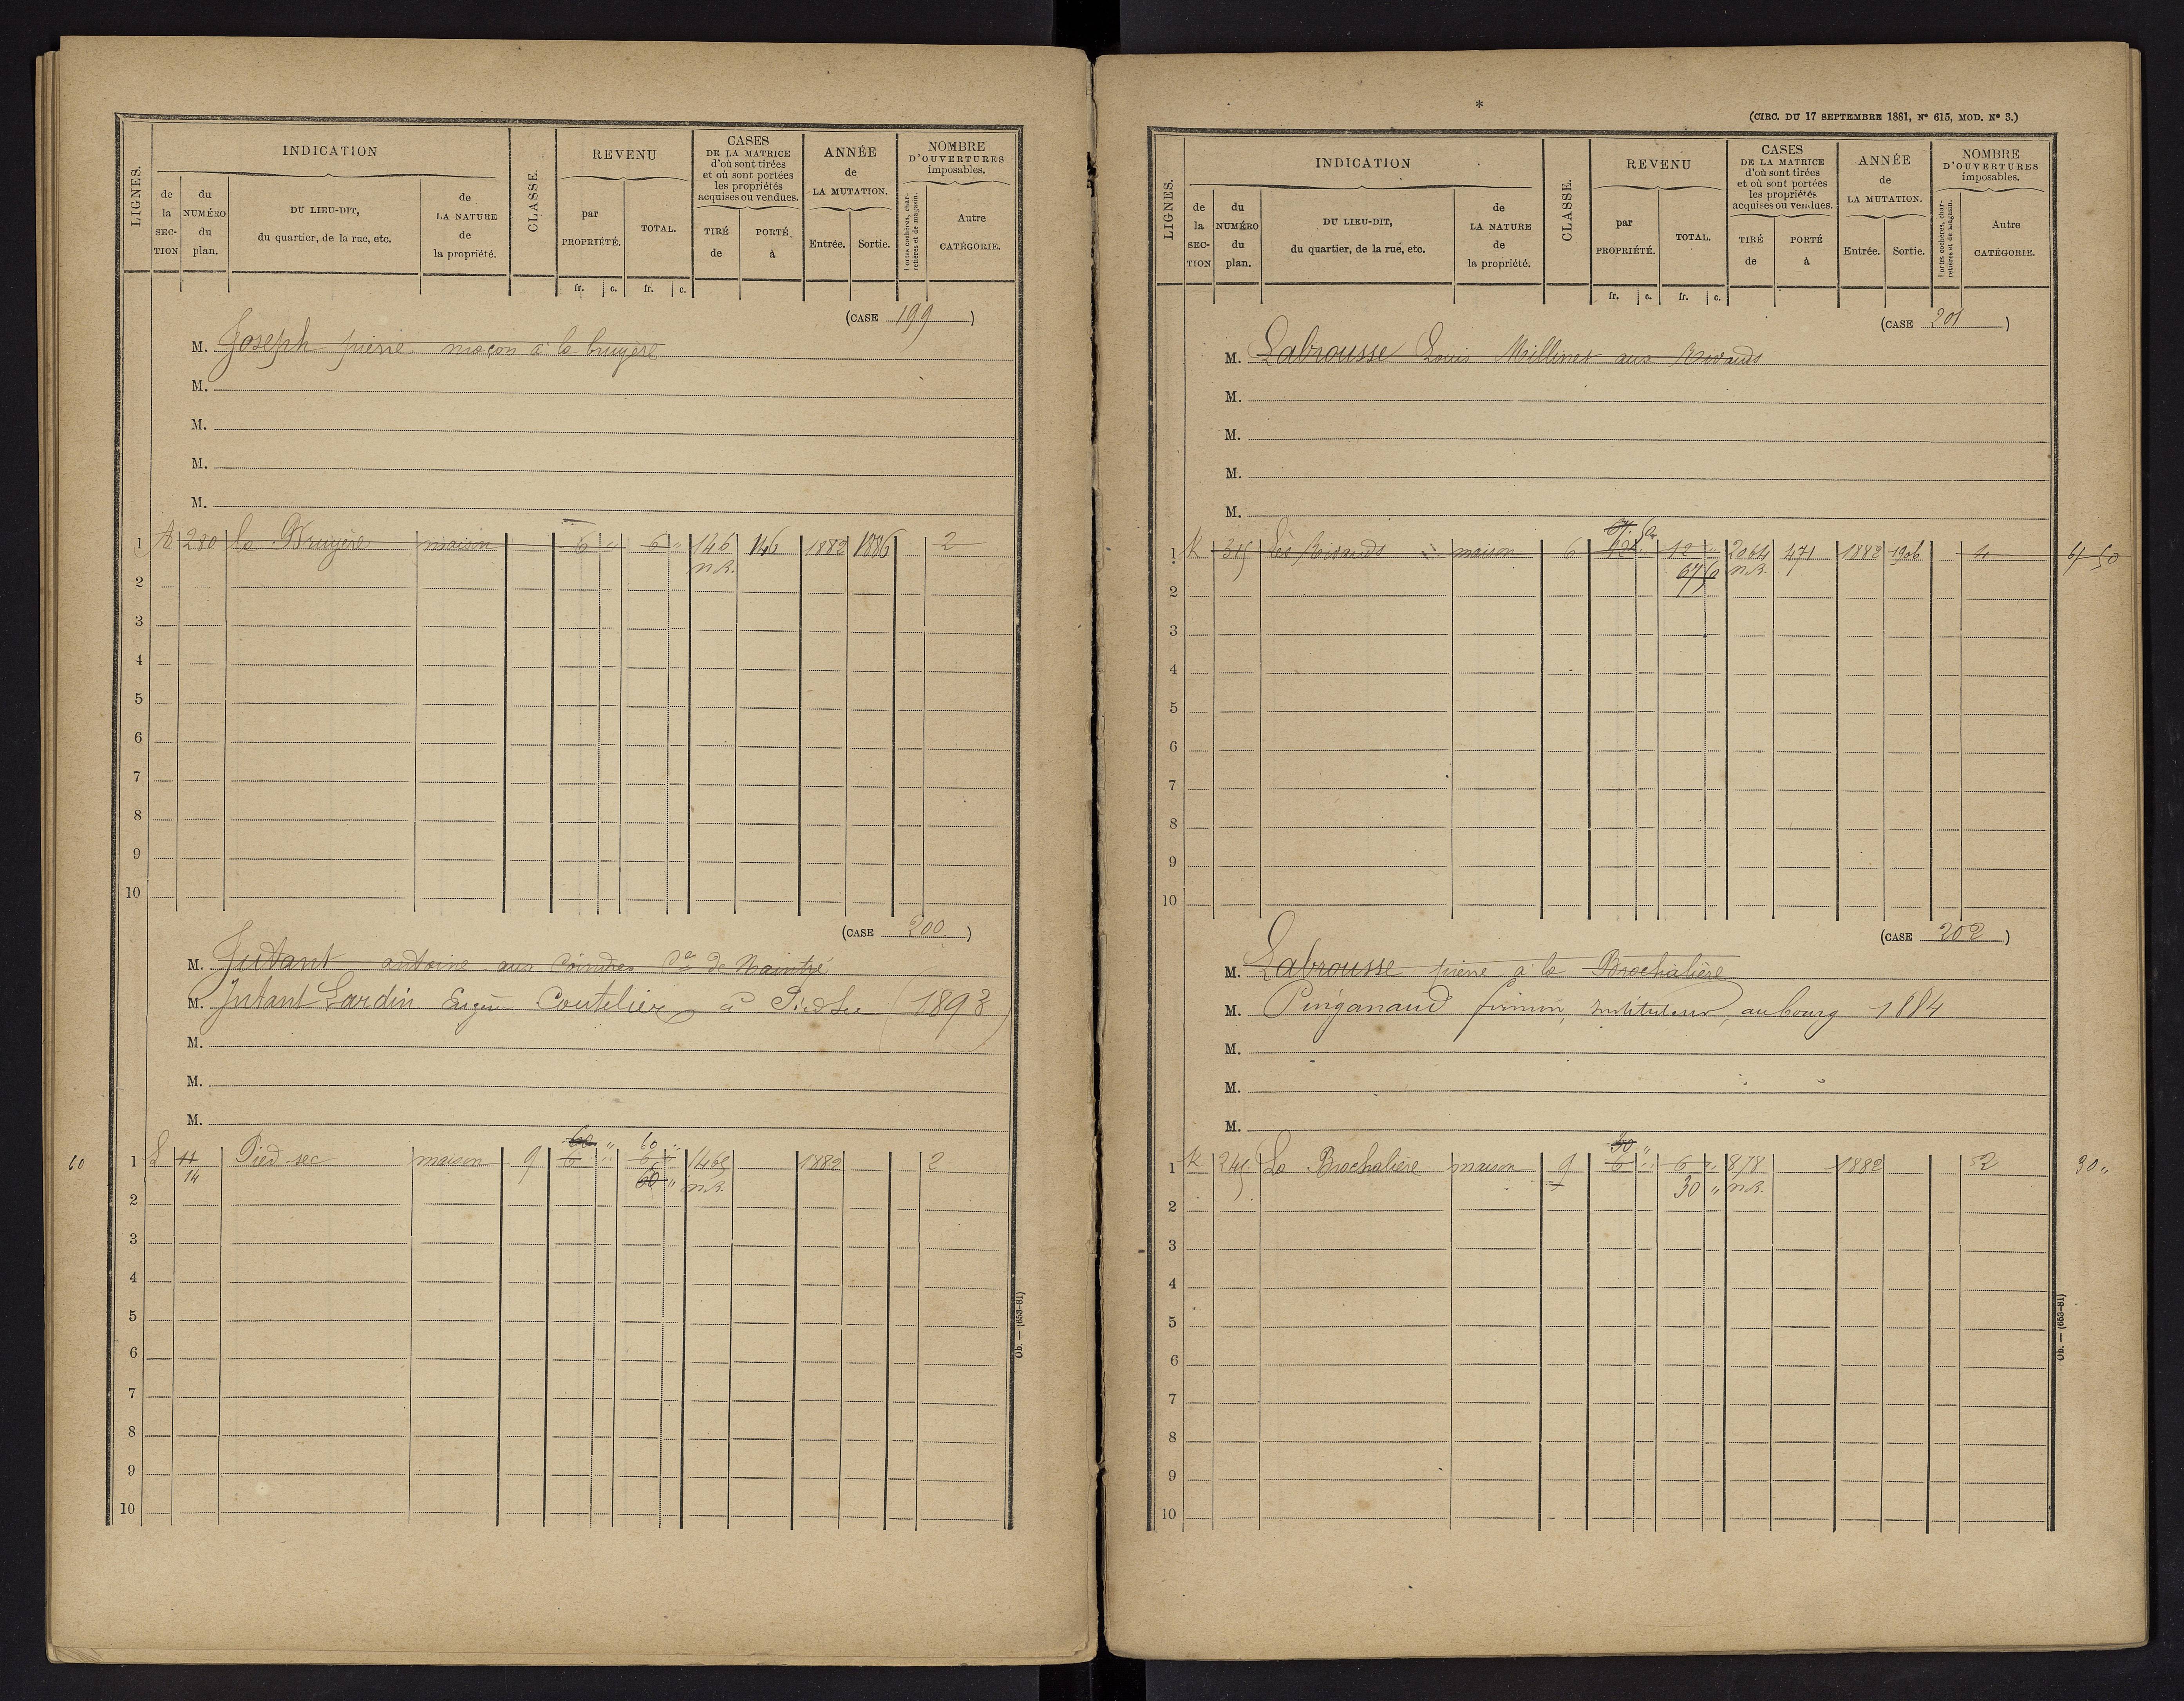 LIGNES.
INDICATION
de la SECTION
du NUMÉRO du plan.
DU LIEU-DIT, du quartier, de la rue, etc.
de LA NATURE de la propriété.
CLASSE.
REVENU
par PROPRIÉTÉ.
TOTAL.
fr. c. fr. c.
CASES DE LA MATRICE d'où sont tirées et où sont portées les propriétés acquises ou vendues.
TIRÉ de
PORTÉ à
ANNÉE de LA MUTATION.
Entrée. Sortie.
NOMBRE D'OUVERTURES imposables.
Portes cochères, charretières et de magasin.
Autre CATÉGORIE.
(CASE 199)
M. Joseph pierre maçon à la bruyère
M.
M.
M.
M.
1 A 280 la Bruyère maison 6 " 6 " 146 146 1882 1886 2
n.R.
2
3
4
5
6
7
8
9
10
(CASE 200)
M. Jutant antoine aux Coindres Cne de Naintré
M. Jutant Lardin Eugène Coutelier à Pied Sec (1893)
M.
M.
M.
60 " 60 "
60 1 L 11 Pied sec maison 9 6 " 6 " 1465 1882 2
14 60 " n.R.
2
3
4
5
6
7
8
9
10
Ob. — (653-81)
*
(CIRC. DU 17 SEPTEMBRE 1881, Nº 615, MOD. Nº 3.)
LIGNES.
INDICATION
de la SECTION
du NUMÉRO du plan.
DU LIEU-DIT, du quartier, de la rue, etc.
de LA NATURE de la propriété.
CLASSE.
REVENU
par PROPRIÉTÉ.
TOTAL.
fr. c. fr. c.
CASES DE LA MATRICE d'où sont tirées et où sont portées les propriétés acquises ou vendues.
TIRÉ de
PORTÉ à
ANNÉE de LA MUTATION.
Entrée. Sortie.
NOMBRE D'OUVERTURES imposables.
Portes cochères, charretières et de magasin.
Autre CATÉGORIE.
(CASE 201)
M. Labrousse Louis Millinet aux Rivauds
M.
M.
M.
M.
1 K 315 Les Rivauds maison 6 12 " 2064 471 1882 1906
67 50 n.R.
2
3
4
5
6
7
8
9
10
(CASE 202)
M. Labrousse pierre à la Brochalière
M. Pinganaud firmin, instituteur, au bourg 1884
M.
M.
M.
30 "
1 K 245 La Brochalière maison 9 6 " 6 " 878 1882 2 30 "
30 " n.R.
2
3
4
5
6
7
8
9
10
Ob. — (653-81)